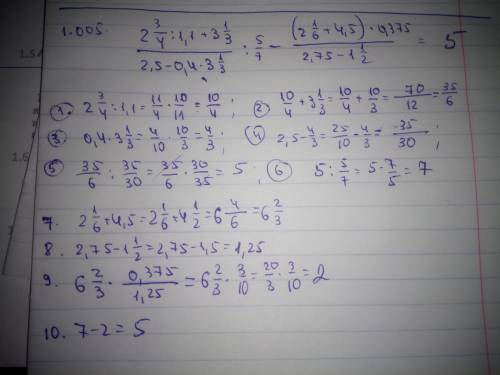 1.005. (2 3/4 : 1,1 + 3 1/3)/(2,5 - 0,4 · 3 1/3) : 5/7 - ((2 1/6 + 4,5) · 0,375)/(2,75 - 1 1/2) = 5
1. 2 3/4 : 1,1 = 11/4 · 10/11 = 10/4; 2 10/4 + 3 1/3 = 10/4 + 10/3 = 70/12 = 35/6
3. 0,4 · 3 1/3 = 4/10 · 10/3 = 4/3; 4 2,5 - 4/3 = 25/10 - 4/3 = 35/30;
5 35/6 : 35/30 = 35/6 · 30/35 = 5; 6 5 : 5/7 = 5 · 7/5 = 7
7. 2 1/6 + 4,5 = 2 1/6 + 4 1/2 = 6 4/6 = 6 2/3
8. 2,75 - 1 1/2 = 2,75 - 1,5 = 1,25
9. 6 2/3 · 0,375/1,25 = 6 2/3 · 3/10 = 20/3 · 3/10 = 2
10. 7 - 2 = 5